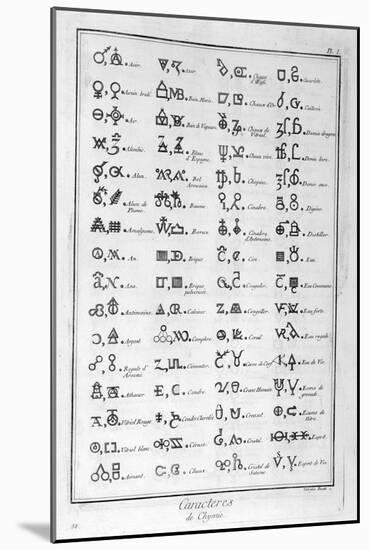 Pl. 1.
Acier.
Airain brulé.
Air.
Alembic.
Alun.
Alun de
Plume.
Amalgame.
An.
Ana.
Antimoine.
Argent.
Regule d'
Arsenic.
Athanor.
Vitriol Rouge.
Vitriol blanc.
Aimant.
Azur.
Bain Marie.
Bain de Vapeurs.
Blanc
d'Espagne.
Bol
Armenien.
Baume.
Borax.
Brique.
Brique
pulverisée.
Calciner.
Camphre.
Cimenter.
Cendre.
Cendre Clavellé.
Ceruse.
Chaux.
Chaux
Chaux d'Or.
Chaux de
Vitriol.
Chaux vive.
Chopine.
Cinabre.
Cinabre
d'Antimoine.
Cire.
Coaguler.
Congeller.
Corail.
Corne de Cerf.
Crane Humain.
Creuset.
Cristal.
Cristal de
Saturne.
Cucurbite.
Cuillerée.
Demie dragme.
Demie livre.
Demie once.
Digérer.
Distiller.
Eau.
Eau Commune.
Eau forte.
Eau regale.
Eau de Vie.
Ecume de
Ecume de
Nitre.
Esprit.
Esprit de Vin.
Caracteres
de Chymie.